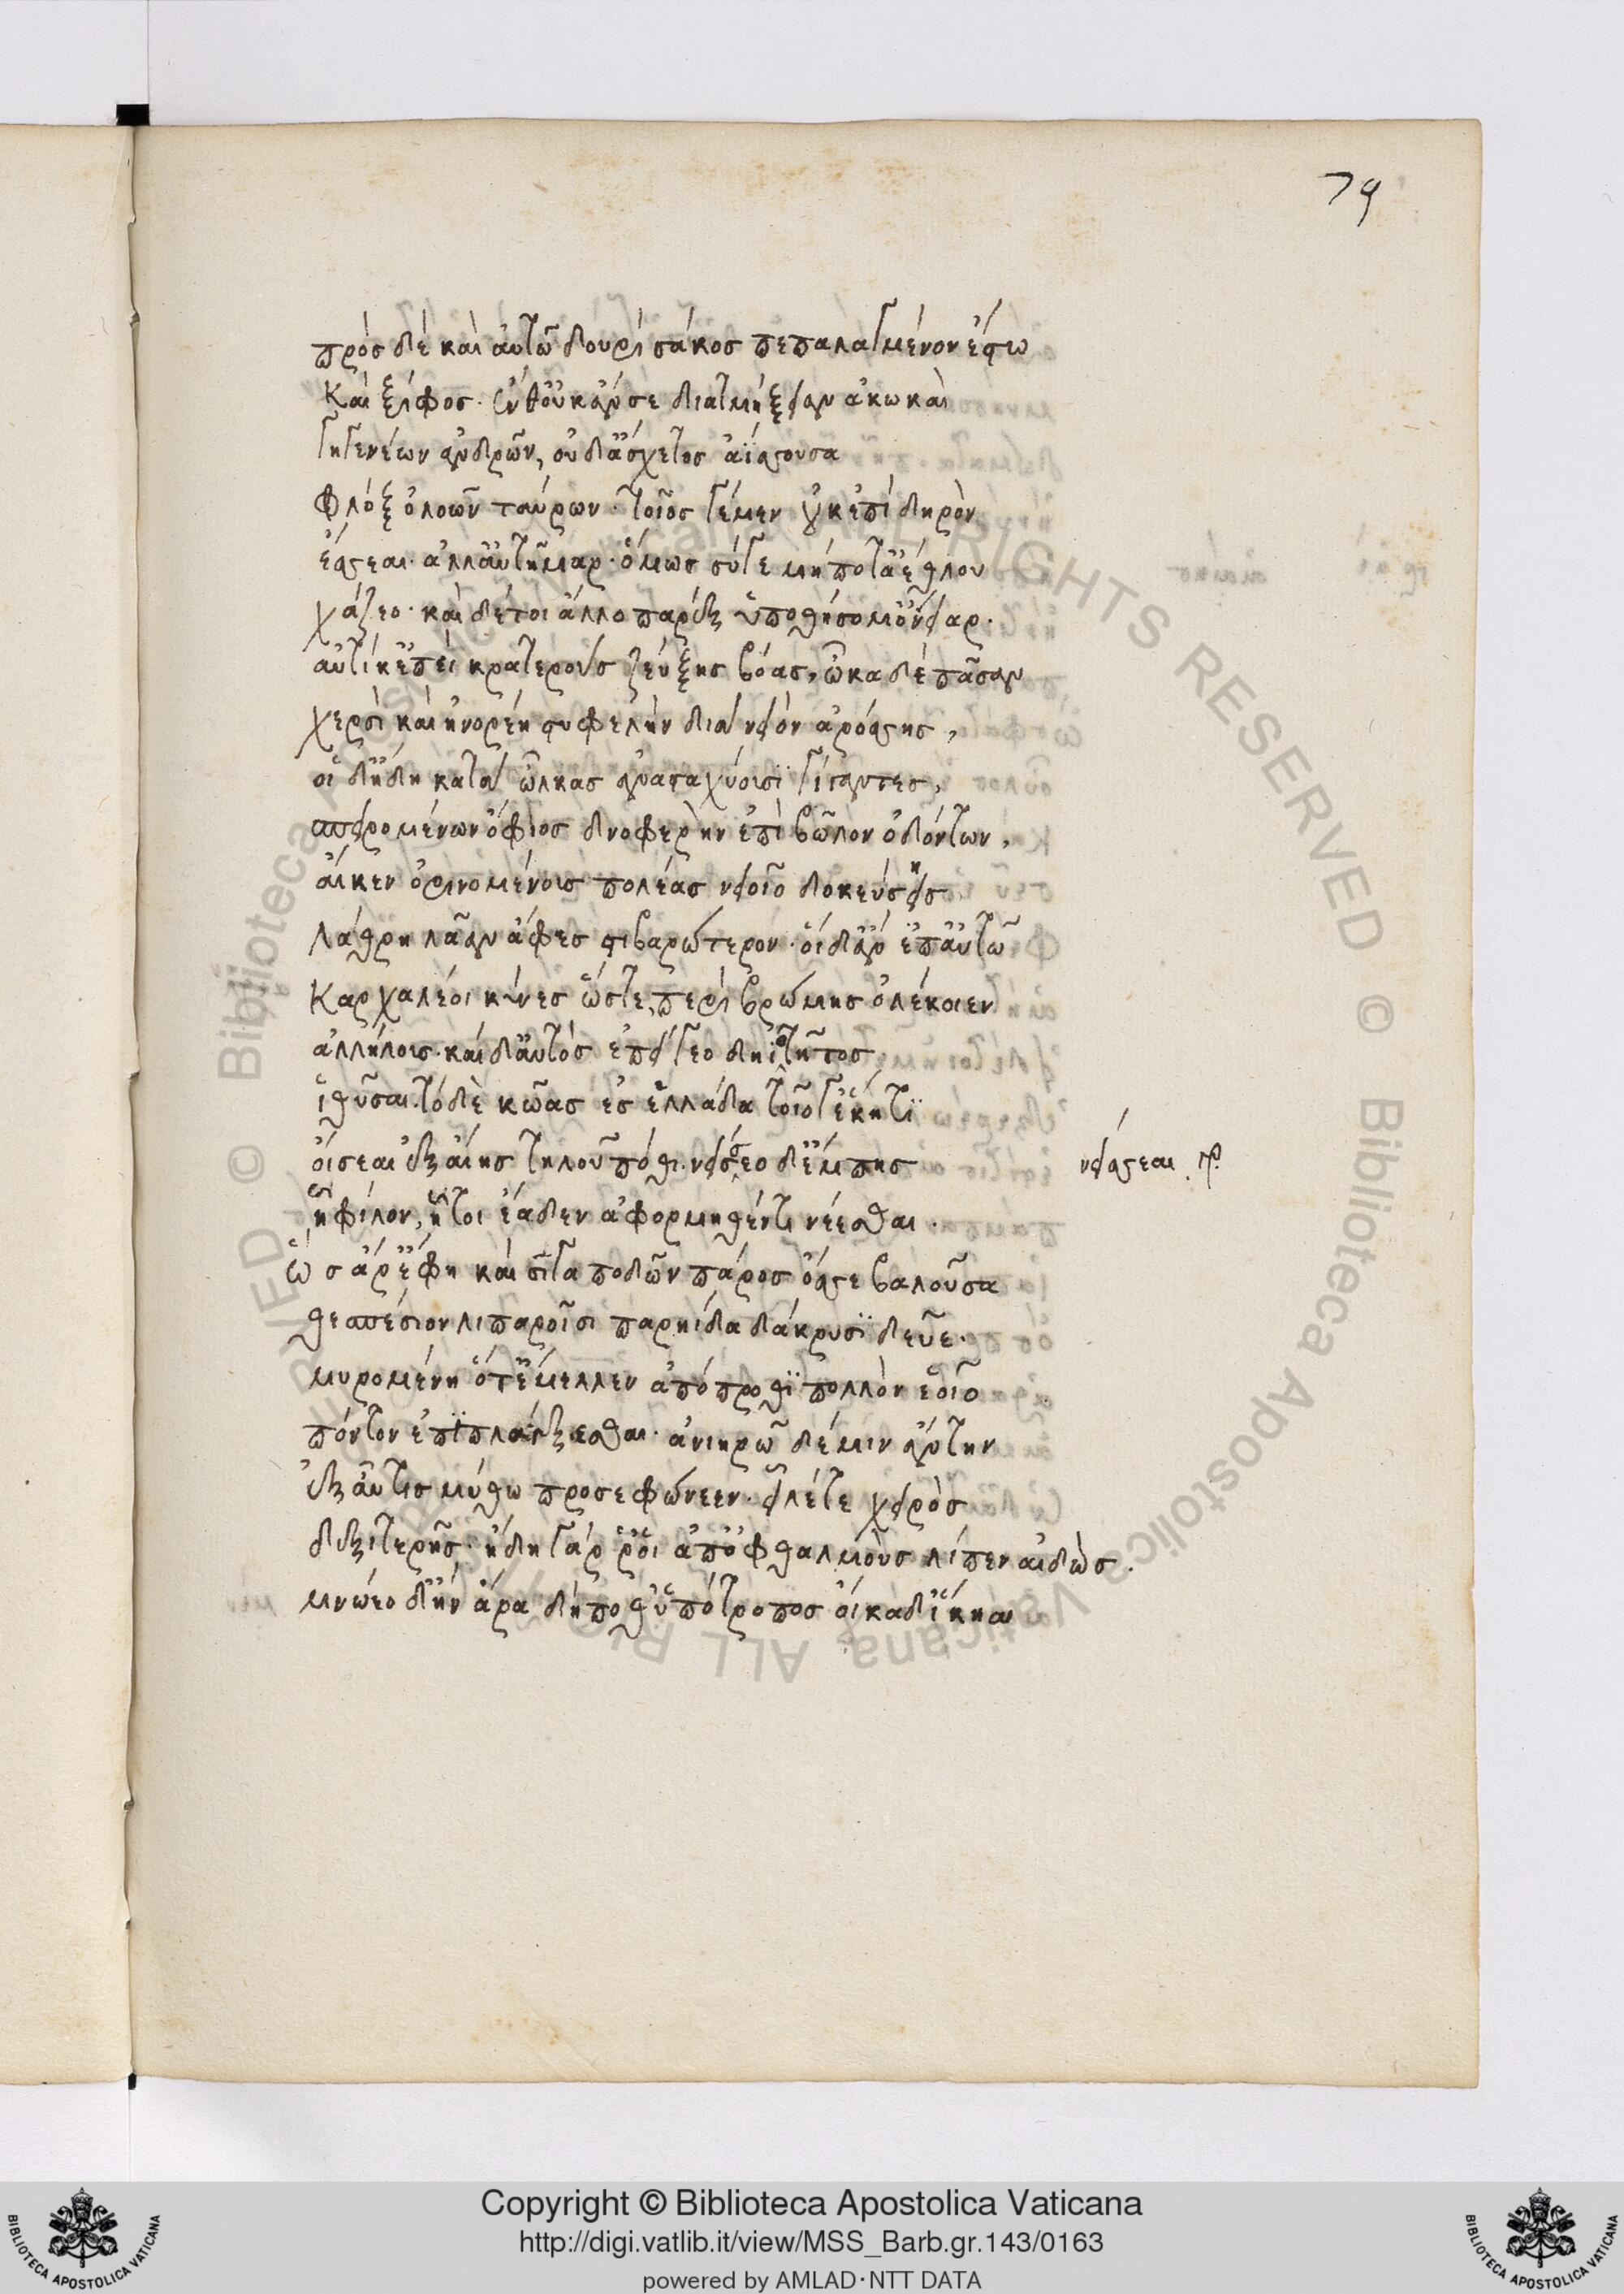 79
πρὸς δὲ καὶ αὐτῶ δουρὶ σάκος πεπαλαγμένον ἔστω
Καὶ ξίφος· ἔνθ' οὔκ ἄν σε διατμήξειαν ἀκωκαὶ
γηγενέων ἀνδρῶν, οὐδ' ἄσχετος ἀΐσσουσα
Φλὸξ ὀλοῶν ταύρων· τοῖος γέ μεν οὐκ ἐπὶ δηρὸν
ἔσσεαι· ἀλλ' αὐτῆμαρ· ὅμως σύ γε μήποτ' ἀέθλου
χάζεο· καὶ δέ τοι ἄλλο παρὲξ ὑποθήσομ' ὄνειαρ.
αὐτίκ' ἐπεὶ κρατεροὺς ζεύξης βόας, ὦκα δὲ πᾶσαν
χερσὶ καὶ ἠνορέη στυφελὴν διὰ νειὸν ἀρόσσης,
οἱ δ' ἤδη κατὰ ὦλκας ἀνασταχύοισϊ γίγαντες,
σπειρομένων ὄφιος δνοφερὴν ἐπὶ βῶλον ὀδόντων,
αἴκεν ὀρινομένοις πολέας νειοῖο δοκεύσηεις
λάθρη λᾶαν ἄφες στιβαρώτερον· οἱ δ' ἂν ἐπ' αὐτῶ
Καρχαλέοι κύνες ὥστε, περὶ βρώμης ὀλέκοιεν
ἀλλήλοις· καὶ δ' αὐτὸς ἐπείγεο δηϊοτῆτος
ἰθῦσαι. τὸ δὲ κῶας ἐς ἑλλάδα τοῖο γ' ἕκητϊ
οἴσεαι ἐξ αἴης τηλοῦ πόθι· νείσσεο δ' ἔμπης
νείσσεαι πρ
ἧ φίλον, ἥτοι ἕαδεν ἀφορμηθέντι νέεσθαι.
Ὣς ἄρ' ἔφη καὶ σῖγα ποδῶν πάρος ὄσσε βαλοῦσα
θεσπέσιον λιπαροῖσι παρηίδα δάκρυσϊ δεῦε·
μυρομένη ὅτ' ἔμελλεν ἀπόπροθϊ πολλὸν ἑοῖο
πόντον ἐπϊπλάγξεσθαι· ἀνιηρῶ δέ μιν ἄντην
ἐξαῦτις μύθω προσεφώνεεν· εἷλέ τε χειρὸς
δεξιτερῆς· ἤδη γάρ ῥ' οἱ ἀπ' ὀφθαλμοὺς λίπεν αἰδὼς.
μνώεο δ' ἢν ἄρα δή ποθ' ὑπότροπος οἴκαδ' ἵκηαι
Copyright © Biblioteca Apostolica Vaticana
http://digi.vatlib.it/view/MSS_Barb.gr.143/0163
powered by AMLAD·NTT DATA